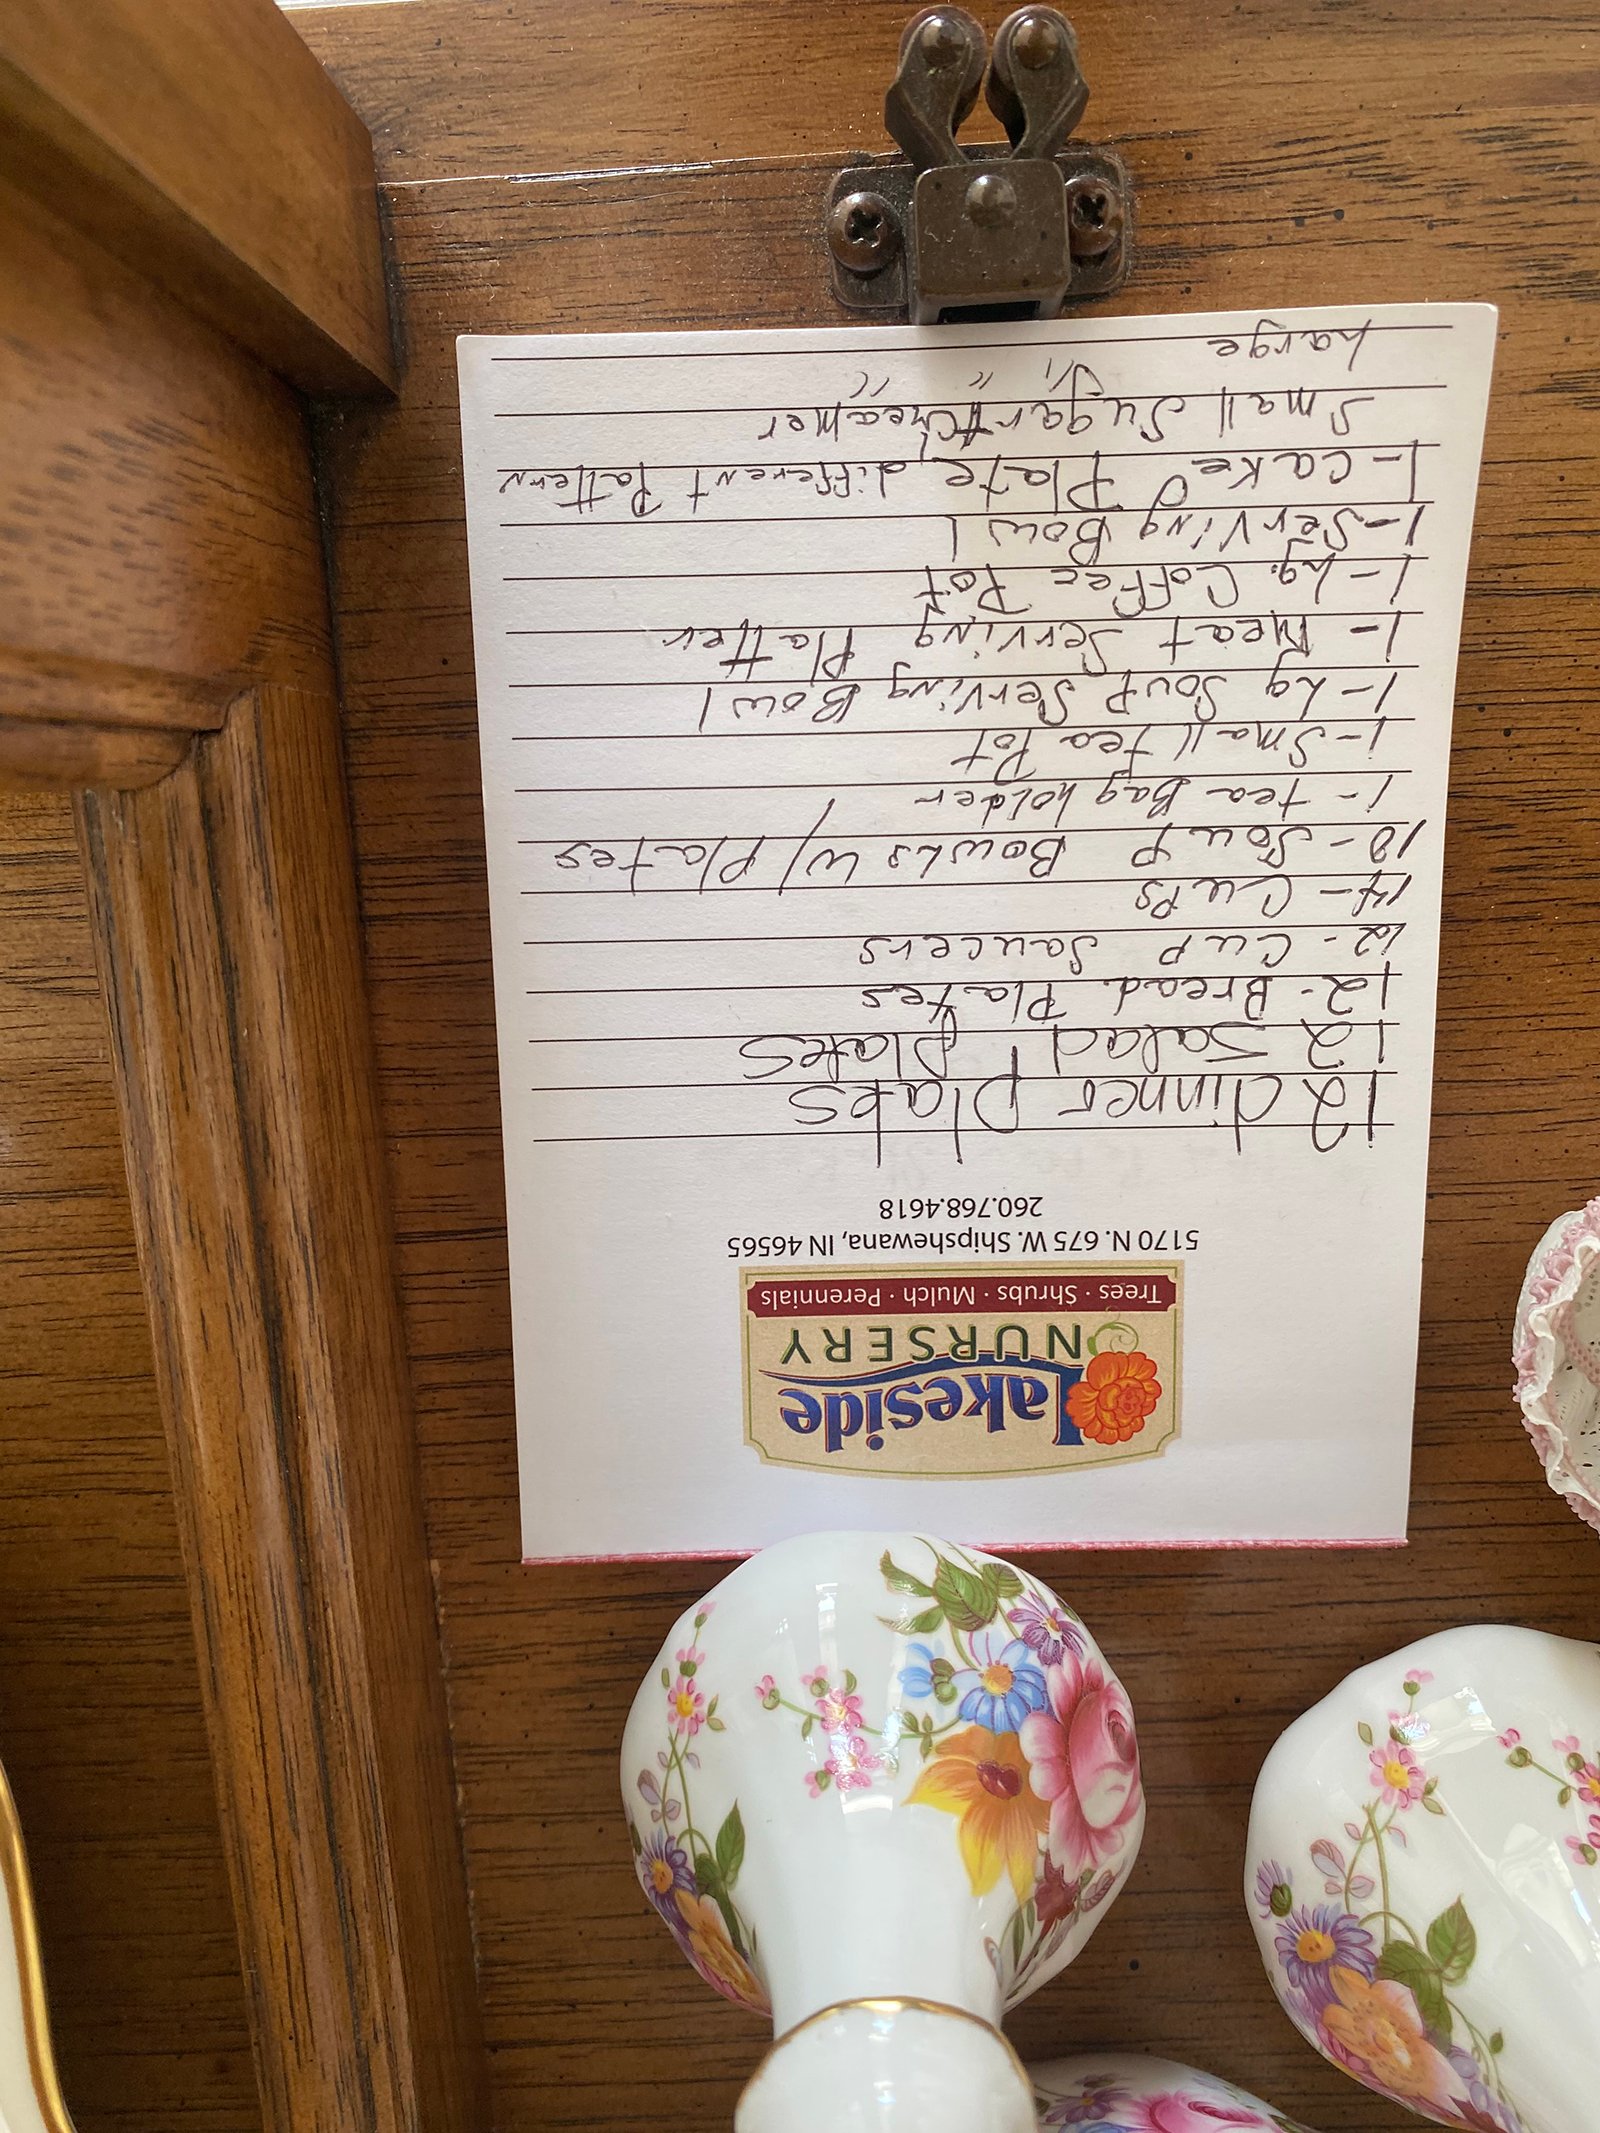 Lakeside
NURSERY
Trees · Shrubs · Mulch · Perennials
5170 N. 675 W. Shipshewana, IN 46565
260.768.4618
12 dinner plates
12 salad plates
12 - Bread Plates
12 - Cup Saucers
14 - Cups
10 - Soup Bowls w/ Plates
1 - tea Bag holder
1 - Small tea Pot
1 - Lg Soup Serving Bowl
1 - Meat Serving Platter
1 - Lg. Coffee Pot
1 - Serving Bowl
1 - Cake Plate, different Pattern
Small Sugar & Creamer
Large " "